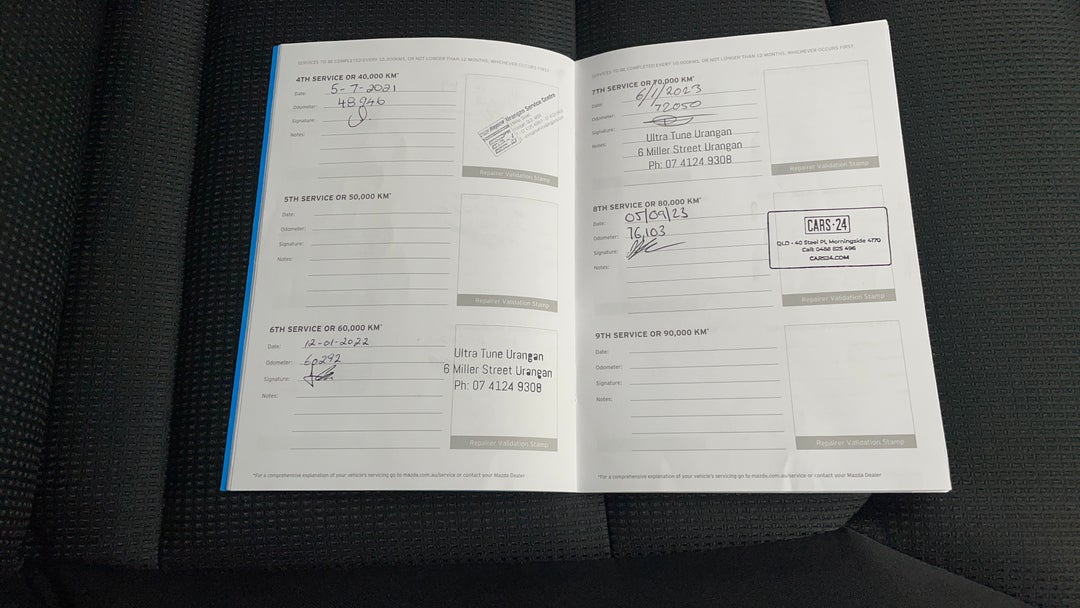 SERVICES TO BE COMPLETED EVERY 10,000KMS, OR NOT LONGER THAN 12 MONTHS, WHICHEVER OCCURS FIRST
4TH SERVICE OR 40,000 KM*
Date: 5-7-2021
Odometer: 48946
Signature:
Notes:
Service Centre
Repairer Validation Stamp
5TH SERVICE OR 50,000 KM*
Date:
Odometer:
Signature:
Notes:
Repairer Validation Stamp
6TH SERVICE OR 60,000 KM*
Date: 12-01-2022
Odometer: 60292
Signature:
Notes:
Ultra Tune Urangan
6 Miller Street Urangan
Ph: 07 4124 9308
Repairer Validation Stamp
*For a comprehensive explanation of your vehicle's servicing go to mazda.com.au/service or contact your Mazda Dealer
SERVICES TO BE COMPLETED EVERY 10,000KMS, OR NOT LONGER THAN 12 MONTHS, WHICHEVER OCCURS FIRST
7TH SERVICE OR 70,000 KM*
Date: 6/1/2023
Odometer: 72050
Signature:
Notes:
Ultra Tune Urangan
6 Miller Street Urangan
Ph: 07 4124 9308
Repairer Validation Stamp
8TH SERVICE OR 80,000 KM*
Date: 05/09/23
Odometer: 76,103
Signature:
Notes:
CARS-24
QLD - 40 Steel Pl, Morningside 4170
Call: 0488 825 496
CARS24.COM
Repairer Validation Stamp
9TH SERVICE OR 90,000 KM*
Date:
Odometer:
Signature:
Notes:
Repairer Validation Stamp
*For a comprehensive explanation of your vehicle's servicing go to mazda.com.au/service or contact your Mazda Dealer